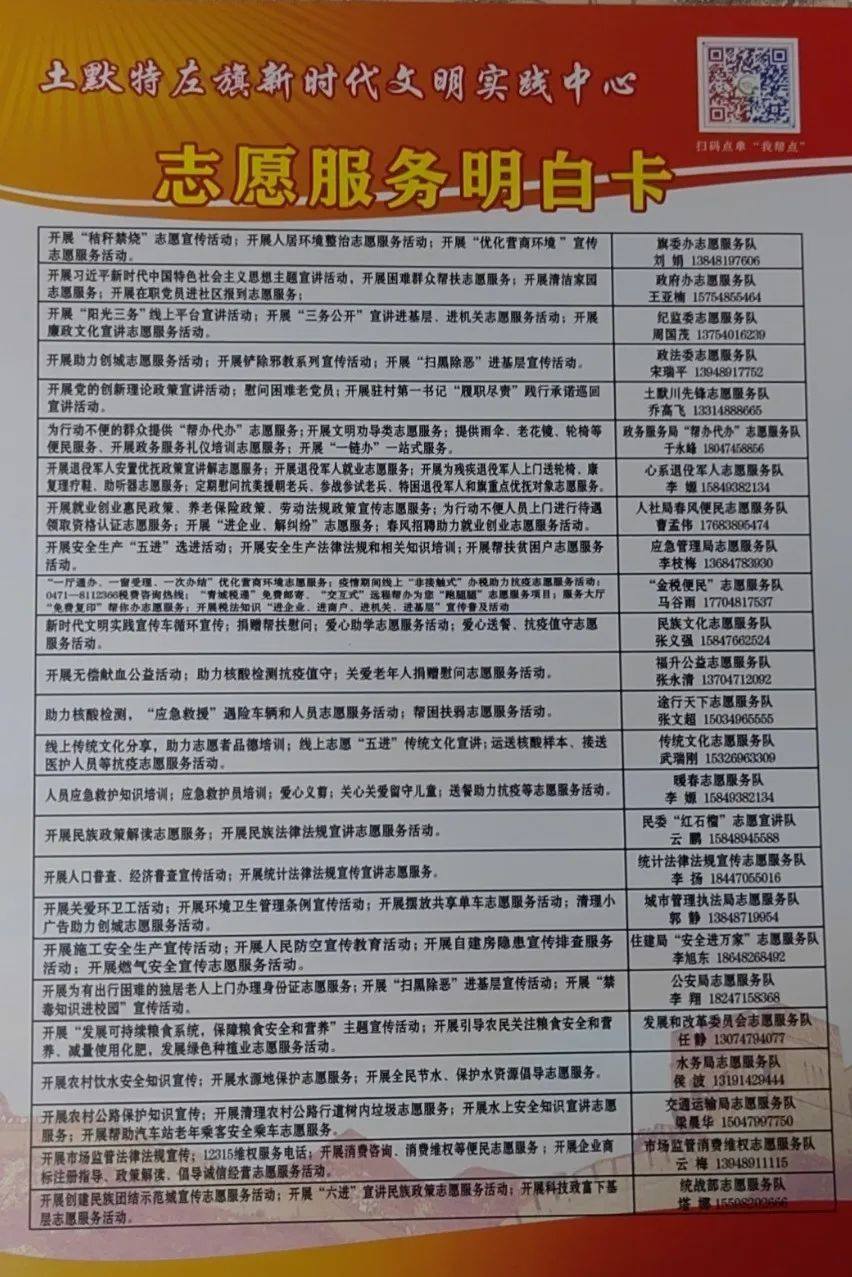 土默特左旗新时代文明实践中心
扫码点单“我帮点”
志愿服务明白卡
开展“秸秆禁烧”志愿宣传活动；开展人居环境整治志愿服务活动；开展“优化营商环境”宣传
志愿服务活动。
旗委办志愿服务队
刘 娟 13848197606
开展习近平新时代中国特色社会主义思想主题宣讲活动，开展困难群众帮扶志愿服务；开展清洁家园
志愿服务；开展在职党员进社区报到志愿服务；
政府办志愿服务队
王亚楠 15754855464
开展“阳光三务”线上平台宣讲活动；开展“三务公开”宣讲进基层、进机关志愿服务活动；开展
廉政文化宣讲志愿服务活动。
纪监委志愿服务队
周国茂 13754016239
开展助力创城志愿服务活动；开展铲除邪教系列宣传活动；开展“扫黑除恶”进基层宣传活动。
政法委志愿服务队
宋瑞平 13948917752
开展党的创新理论政策宣讲活动；慰问困难老党员；开展驻村第一书记“履职尽责”践行承诺巡回
宣讲活动。
土默川先锋志愿服务队
乔高飞 13314888665
为行动不便的群众提供“帮办代办”志愿服务；开展文明劝导类志愿服务；提供雨伞、老花镜、轮椅等
便民服务、开展政务服务礼仪培训志愿服务；开展“一链办”一站式服务。
政务服务局“帮办代办”志愿服务队
于永峰 18047458856
开展退役军人安置优抚政策宣讲解志愿服务；开展退役军人就业志愿服务；开展为残疾退役军人上门送轮椅、康
复理疗鞋、助听器志愿服务；定期慰问抗美援朝老兵、参战参试老兵、特困退役军人和旗重点优抚对象志愿服务。
心系退役军人志愿服务队
李 嫄 15849382134
开展就业创业惠民政策、养老保险政策、劳动法规政策宣传志愿服务；为行动不便人员上门进行待遇
领取资格认证志愿服务；开展“进企业、解纠纷”志愿服务；春风招聘助力就业创业志愿服务活动。
人社局春风便民志愿服务队
曹孟伟 17683895474
开展安全生产“五进”选进活动；开展安全生产法律法规和相关知识培训；开展帮扶贫困户志愿服务
活动。
应急管理局志愿服务队
李枝梅 13684783930
“一厅通办、一窗受理、一次办结”优化营商环境志愿服务；疫情期间线上“非接触式”办税助力抗疫志愿服务活动；
0471-8112366税费咨询热线；“青城税递”免费邮寄、“交互式”远程帮办为您“跑腿腿”志愿服务项目；服务大厅
“免费复印”帮你办志愿服务；开展税法知识“进企业、进商户、进机关、进基层”宣传普及活动
“金税便民”志愿服务队
马谷雨 17704817537
新时代文明实践宣传车循环宣传；捐赠帮扶慰问；爱心助学志愿服务活动；爱心送餐、抗疫值守志愿
服务活动。
民族文化志愿服务队
张义强 15847662524
开展无偿献血公益活动；助力核酸检测抗疫值守；关爱老年人捐赠慰问志愿服务活动。
福升公益志愿服务队
张永清 13704712092
助力核酸检测，“应急救援”遇险车辆和人员志愿服务活动；帮困扶弱志愿服务活动。
途行天下志愿服务队
张文超 15034965555
线上传统文化分享，助力志愿者品德培训；线上志愿“五进”传统文化宣讲；运送核酸样本、接送
医护人员等抗疫志愿服务活动。
传统文化志愿服务队
武瑞刚 15326963309
人员应急救护知识培训；应急救护员培训；爱心义剪；关心关爱留守儿童；送餐助力抗疫等志愿服务活动。
暖春志愿服务队
李 嫄 15849382134
开展民族政策解读志愿服务；开展民族法律法规宣讲志愿服务活动。
民委“红石榴”志愿宣讲队
云 鹏 15848945588
开展人口普查、经济普查宣传活动；开展统计法律法规宣传宣讲志愿服务。
统计法律法规宣传志愿服务队
李 扬 18447055016
开展关爱环卫工活动；开展环境卫生管理条例宣传活动；开展摆放共享单车志愿服务活动；清理小
广告助力创城志愿服务活动。
城市管理执法局志愿服务队
郭 静 13848719954
开展施工安全生产宣传活动；开展人民防空宣传教育活动；开展自建房隐患宣传排查服务
活动；开展燃气安全宣传志愿服务活动。
住建局“安全进万家”志愿服务队
李旭东 18648268492
开展为有出行困难的独居老人上门办理身份证志愿服务；开展“扫黑除恶”进基层宣传活动；开展“禁
毒知识进校园”宣传活动。
公安局志愿服务队
李 翔 18247158368
开展“发展可持续粮食系统，保障粮食安全和营养”主题宣传活动；开展引导农民关注粮食安全和营
养、减量使用化肥，发展绿色种植业志愿服务活动。
发展和改革委员会志愿服务队
任 静 13074794077
开展农村饮水安全知识宣传；开展水源地保护志愿服务；开展全民节水、保护水资源倡导志愿服务。
水务局志愿服务队
侯 波 13191429444
开展农村公路保护知识宣传；开展清理农村公路行道树内垃圾志愿服务；开展水上安全知识宣讲志愿
服务；开展帮助汽车站老年乘客安全乘车志愿服务。
交通运输局志愿服务队
梁晨华 15047997750
开展市场监管法律法规宣传；12315维权服务电话；开展消费咨询、消费维权等便民志愿服务；开展企业商
标注册指导、政策解读、倡导诚信经营志愿服务活动。
市场监管消费维权志愿服务队
云 梅 13948911115
开展创建民族团结示范城宣传志愿服务活动；开展“六进”宣讲民族政策志愿服务活动；开展科技政富下基
层志愿服务活动。
统战部志愿服务队
塔 娜 15598202666